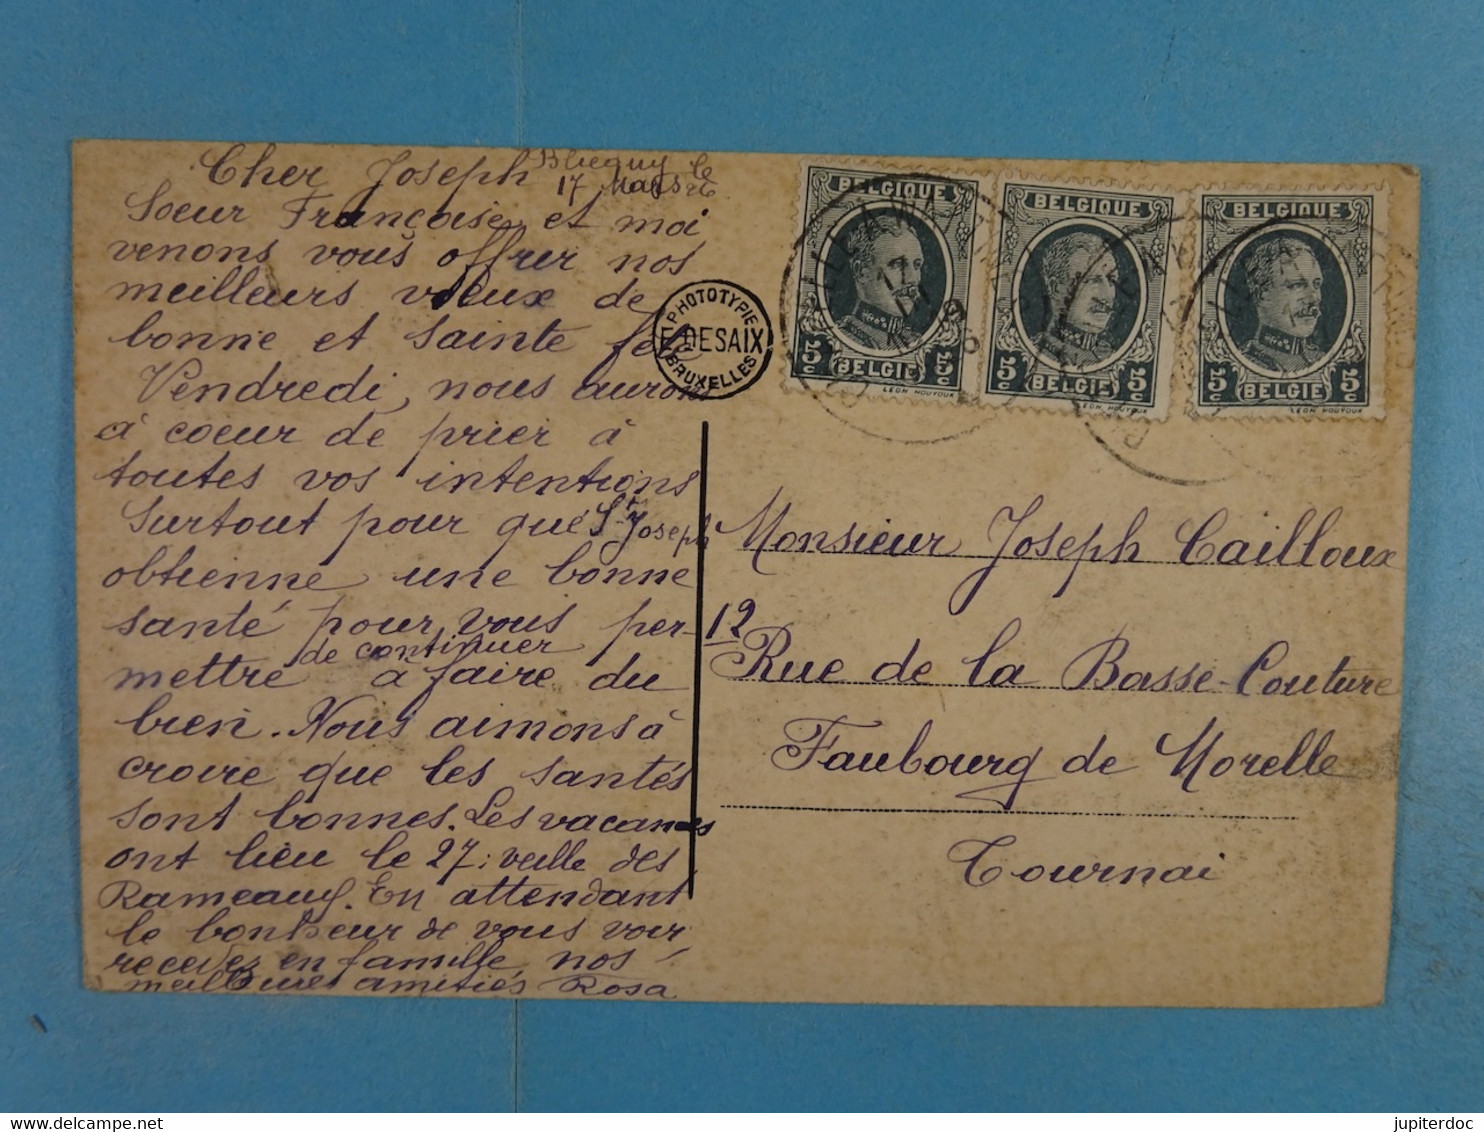 Cher Joseph
le
17 Mars 26
Soeur Françoise et moi
venons vous offrir nos
meilleurs voeux de
bonne et sainte fête
Vendredi, nous aurons
à coeur de prier à
toutes vos intentions
Surtout pour que St Joseph
obtienne une bonne
santé pour vous per-
de continuer
mettre à faire du
bien. Nous aimons à
croire que les santés
sont bonnes. Les vacances
ont lieu le 27; veille des
Rameaux. En attendant
le bonheur de vous voir
recevez en famille nos
meilleures amitiés Rosa
PHOTOTYPIE
E. DESAIX
BRUXELLES
BELGIQUE
5c 5c
BELGIË
LEON HOUYOUX
BELGIQUE
5c 5c
BELGIË
LEON HOUYOUX
BELGIQUE
5c 5c
BELGIË
LEON HOUYOUX
Monsieur Joseph Cailloux
12
Rue de la Basse-Couture
Faubourg de Morelle
Tournai
delcampe.net
jupiterdoc